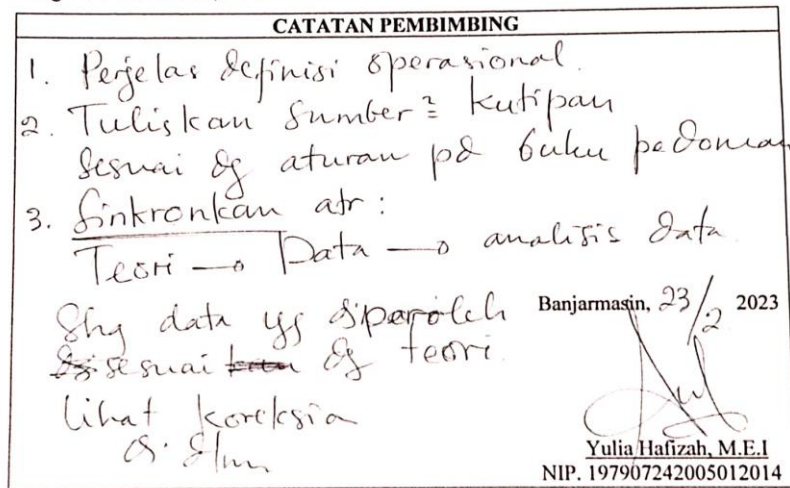 CATATAN PEMBIMBING
1. Perjelas definisi operasional.
2. Tuliskan Sumber² kutipan
sesuai dg aturan pd buku pedoman
3. Sinkronkan atr :
Teori → Data → analisis data
Shg data yg diperoleh
sesuai dg teori.
Lihat koreksian
Banjarmasin, 23/2 2023
Yulia Hafizah, M.E.I
NIP. 197907242005012014